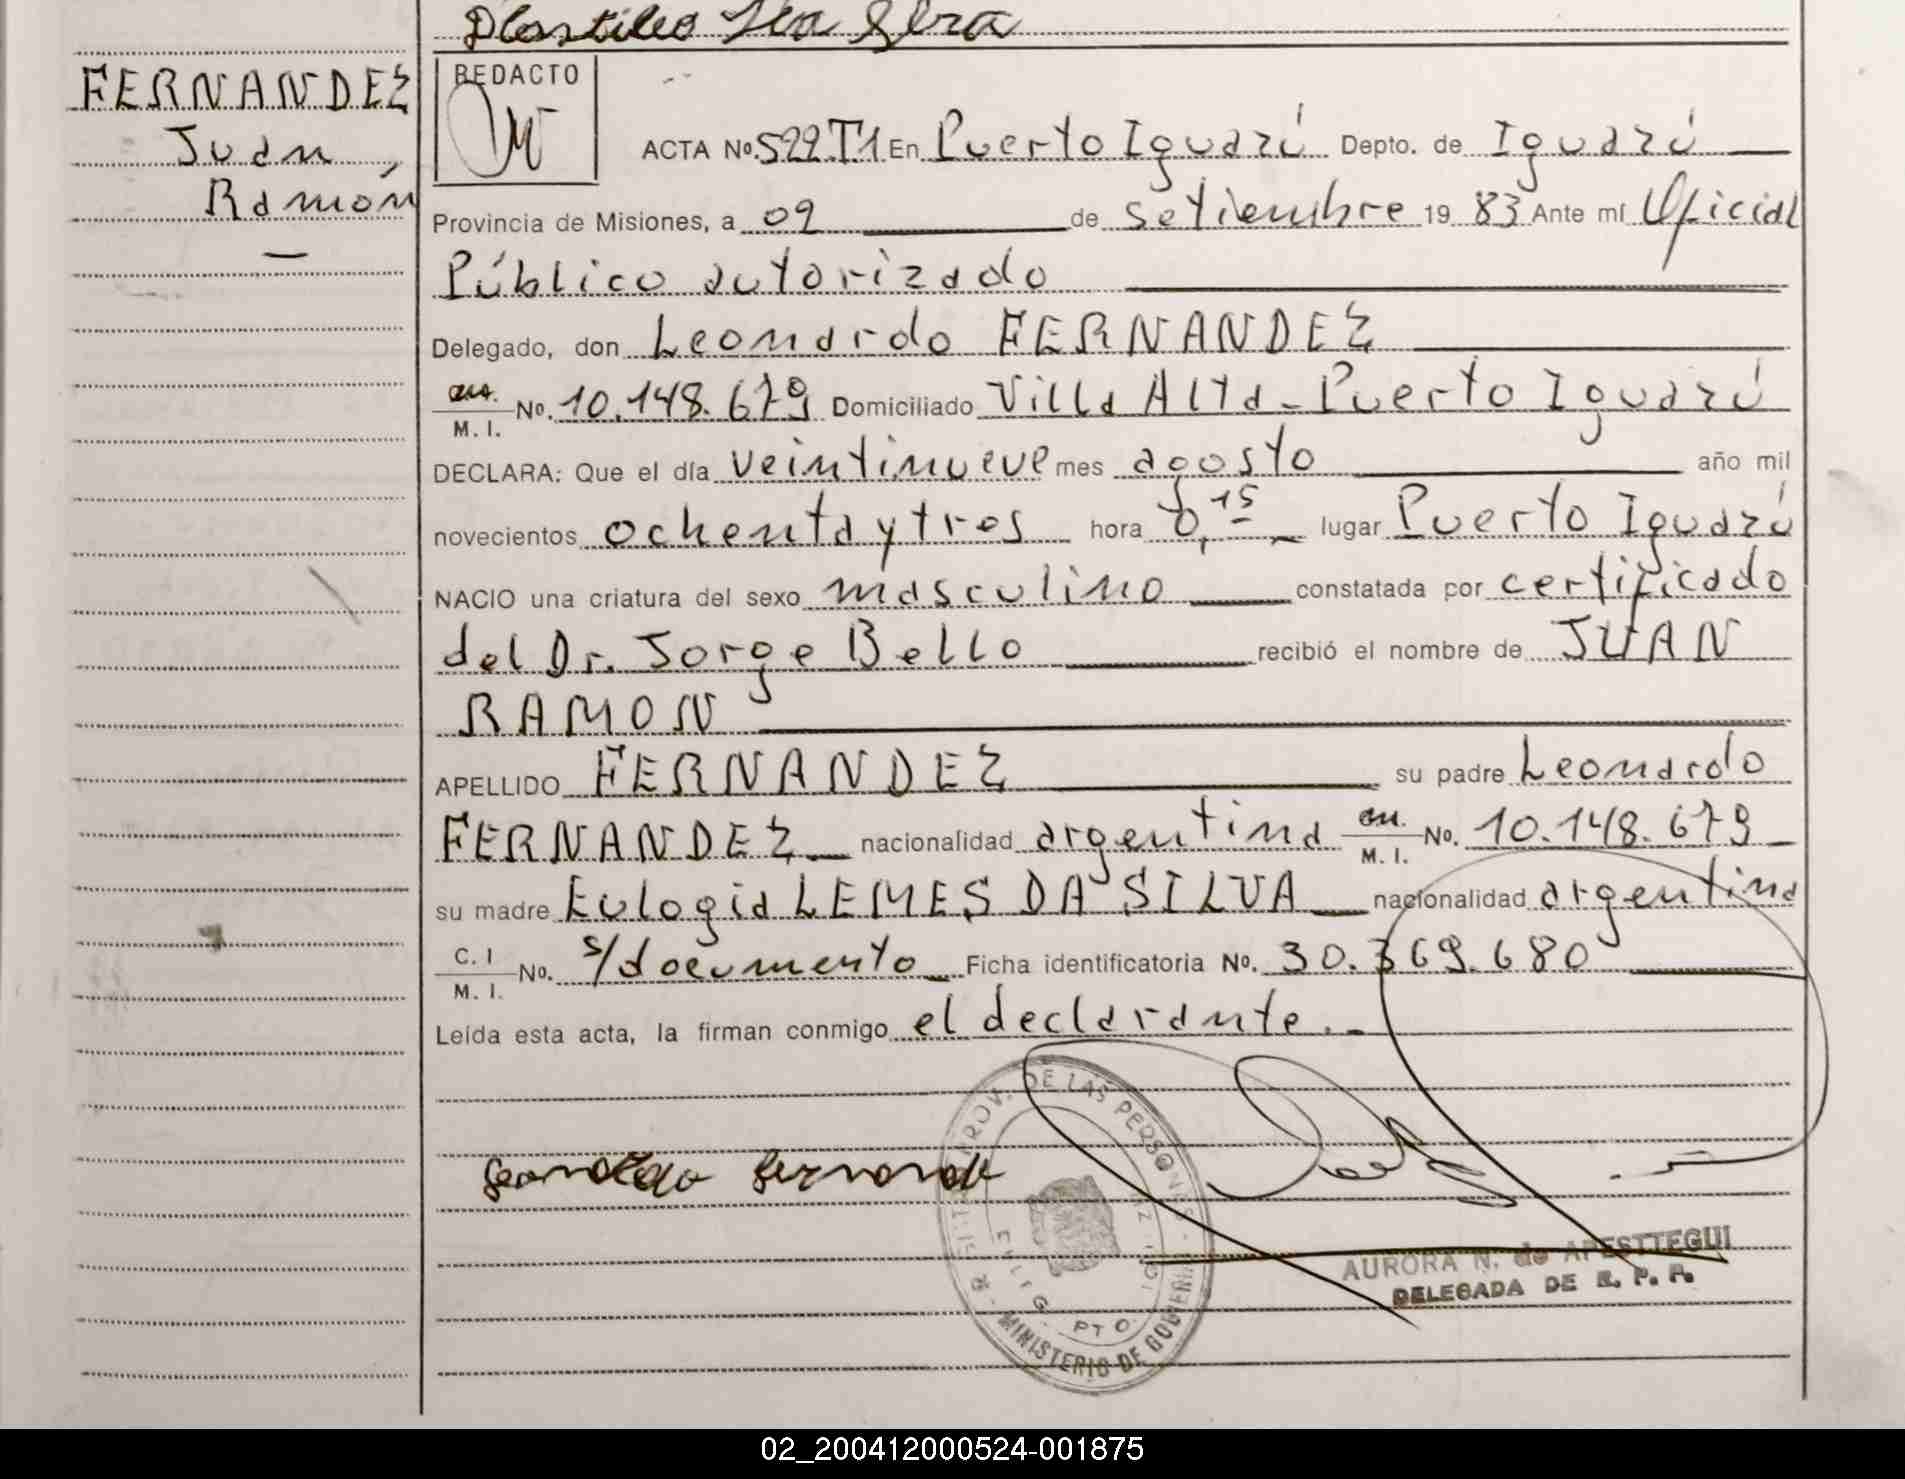 FERNANDEZ
Juan
Ramón
REDACTO
ACTA No. 522.T1 En Puerto Iguazú Depto. de Iguazú
Provincia de Misiones, a 09 de setiembre 19 83 Ante mí Oficial
Público autorizado
Delegado, don Leonardo FERNANDEZ
M. I. No. 10.148.679 Domiciliado Villa Alta - Puerto Iguazú
DECLARA: Que el día veintinueve mes agosto año mil
novecientos ochenta y tres hora 8,15 lugar Puerto Iguazú
NACIO una criatura del sexo masculino constatada por certificado
del Dr. Jorge Bello recibió el nombre de JUAN
RAMON
APELLIDO FERNANDEZ su padre Leonardo
FERNANDEZ nacionalidad argentina M. I. No. 10.148.679
su madre Eulogia LEMES DA SILVA nacionalidad argentina
C. I M. I. No. s/documento Ficha identificatoria No. 30.369.680
Leída esta acta, la firman conmigo el declarante.-
DE LAS PERSONAS
MINISTERIO DE GOBIERNO
AURORA N. de APESTTEGUI
DELEGADA DE R. P. P.
02_200412000524-001875